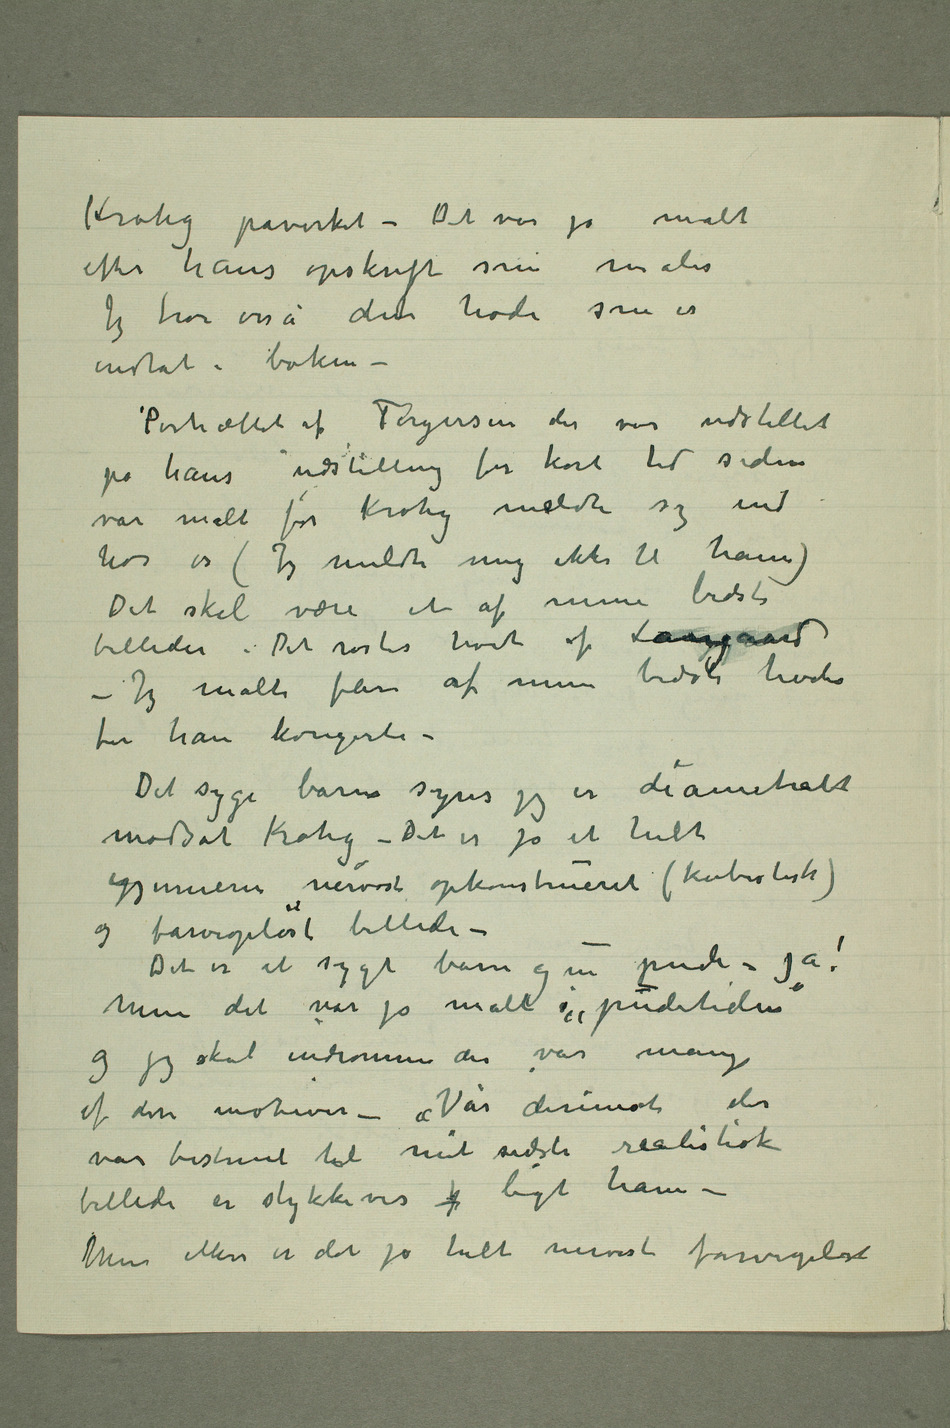 Krohg påvirket – Det var jo malt
efter hans opskrift som males
Jeg tror også det hode som er
indtat i boken –
Portrættet af Torgersen der var udstillet
på hans udstilling for kort tid siden
var malt før Krohg meldte sig ind
hos os (Jeg meldte mig ikke til ham)
Det skal være et af mine bedste
billeder. Det rostes høit af Langaard
– Jeg malte flere af mine bedste hoder
før han korigerte –
Det syge barn synes jeg er diametralt
modsat Krohg – Det er jo et helt
igjennem nervøst opkonstrueret (kubistisk)
og farveopløst billede –
Det er et sygt barn og en pude – ja!
Men det var jo malt i „pudetiden“
og jeg skal indrømme der var mange
af den motiver – „Vår derimot der
var bestemt til mit sidste realistisk
billede er stykkevis ligt ham –
Men ellers er det jo helt nervøst farveopløst